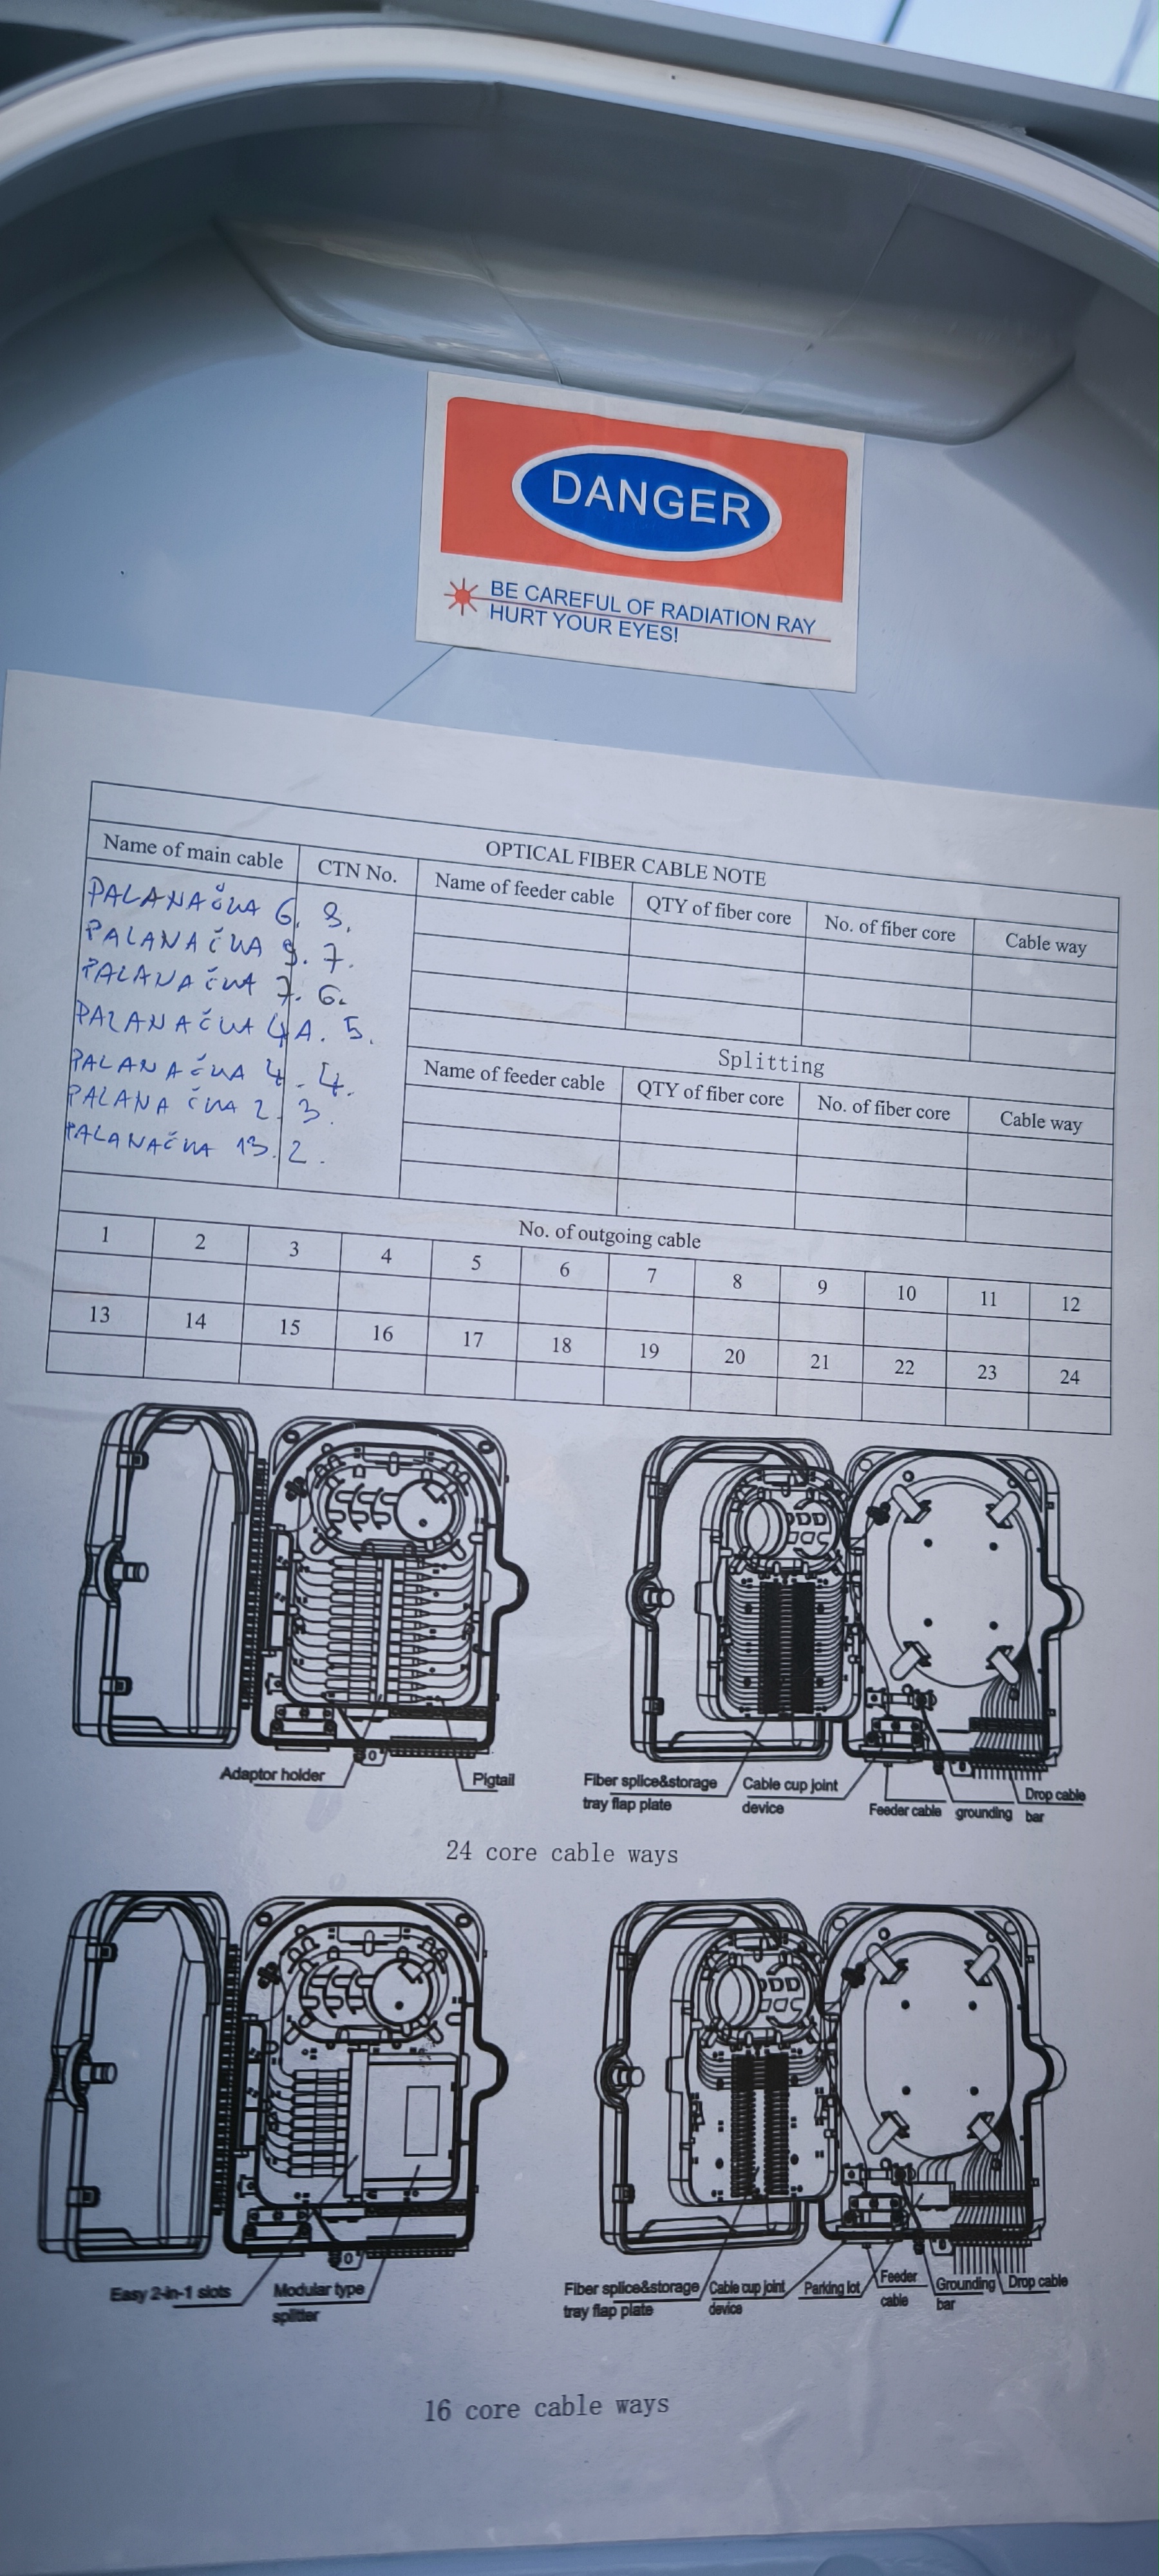 DANGER
BE CAREFUL OF RADIATION RAY
HURT YOUR EYES!
OPTICAL FIBER CABLE NOTE
Name of main cable CTN No. Name of feeder cable QTY of fiber core No. of fiber core Cable way
PALANAČKA 6. 8.
PALANAČKA 9. 7.
PALANAČKA 7. 6.
PALANAČKA 4A. 5.
PALANAČKA 4. 4.
PALANAČKA 2. 3.
PALANAČKA 13. 2.
Splitting
Name of feeder cable QTY of fiber core No. of fiber core Cable way
No. of outgoing cable
1 2 3 4 5 6 7 8 9 10 11 12
13 14 15 16 17 18 19 20 21 22 23 24
Adaptor holder Pigtail
Fiber splice&storage tray flap plate
Cable cup joint device
Feeder cable
grounding bar
Drop cable
24 core cable ways
Easy 2-in-1 slots
Modular type splitter
Fiber splice&storage tray flap plate
Cable cup joint device
Parking lot
Feeder cable
Grounding bar
Drop cable
16 core cable ways